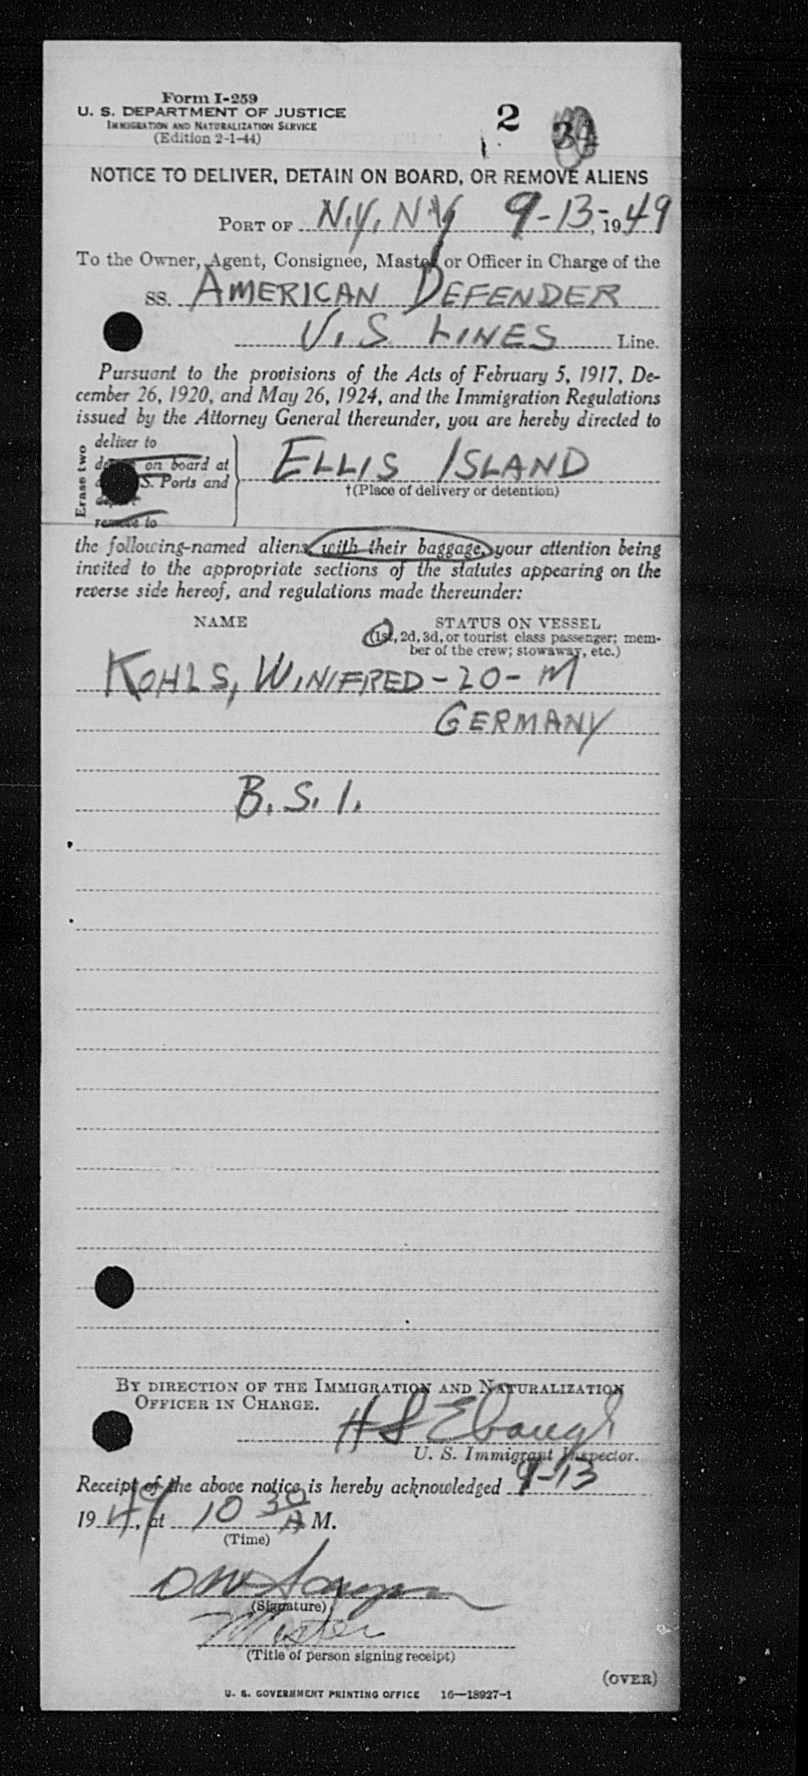 Form I-259
U. S. DEPARTMENT OF JUSTICE
IMMIGRATION AND NATURALIZATION SERVICE
(Edition 2-1-44)
2
NOTICE TO DELIVER, DETAIN ON BOARD, OR REMOVE ALIENS
PORT OF N.Y, NY 9-13-, 1949
To the Owner, Agent, Consignee, Master or Officer in Charge of the
SS. AMERICAN DEFENDER
U.S LINES Line.
Pursuant to the provisions of the Acts of February 5, 1917, De-
cember 26, 1920, and May 26, 1924, and the Immigration Regulations
issued by the Attorney General thereunder, you are hereby directed to
Erase two
deliver to
on board at
S. Ports and
remove to
ELLIS ISLAND
†(Place of delivery or detention)
the following-named aliens with their baggage, your attention being
invited to the appropriate sections of the statutes appearing on the
reverse side hereof, and regulations made thereunder:
NAME
STATUS ON VESSEL
(1st, 2d, 3d, or tourist class passenger; mem-
ber of the crew; stowaway, etc.)
KOHLS, WINIFRED-20-M
GERMANY
B.S.I.
BY DIRECTION OF THE IMMIGRATION AND NATURALIZATION
OFFICER IN CHARGE.
H S Ebaugh
U. S. Immigrant Inspector.
Receipt of the above notice is hereby acknowledged 9-13
1949, at 10 30 A M.
(Time)
(Signature)
Master
(Title of person signing receipt)
(OVER)
U. S. GOVERNMENT PRINTING OFFICE 16—18927-1